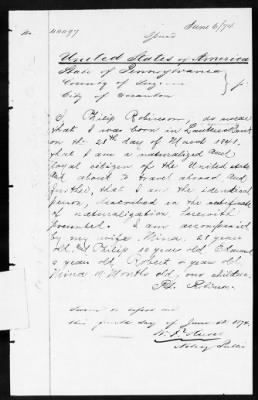 No 40097
June 6/74
United States of America
State of Pennsylvania
County of Luzerne
City of Scranton
I, Philip Robinson, do swear
that I was born in
on the 25th day of March 1841,
that I am a naturalized and
loyal citizen of the United States
and about to travel abroad and
further, that I am the identical
person, described in the certificate
of naturalization, herewith
presented. I am accompanied
by my wife, Mina, 29 years
old, and Philip 10 year old,
9 years old Robert 4 year old
Mina 9 Months old, our children.
Ph. Robinson
Sworn to before me
this fourth day of June AD 1874.
Notary Public